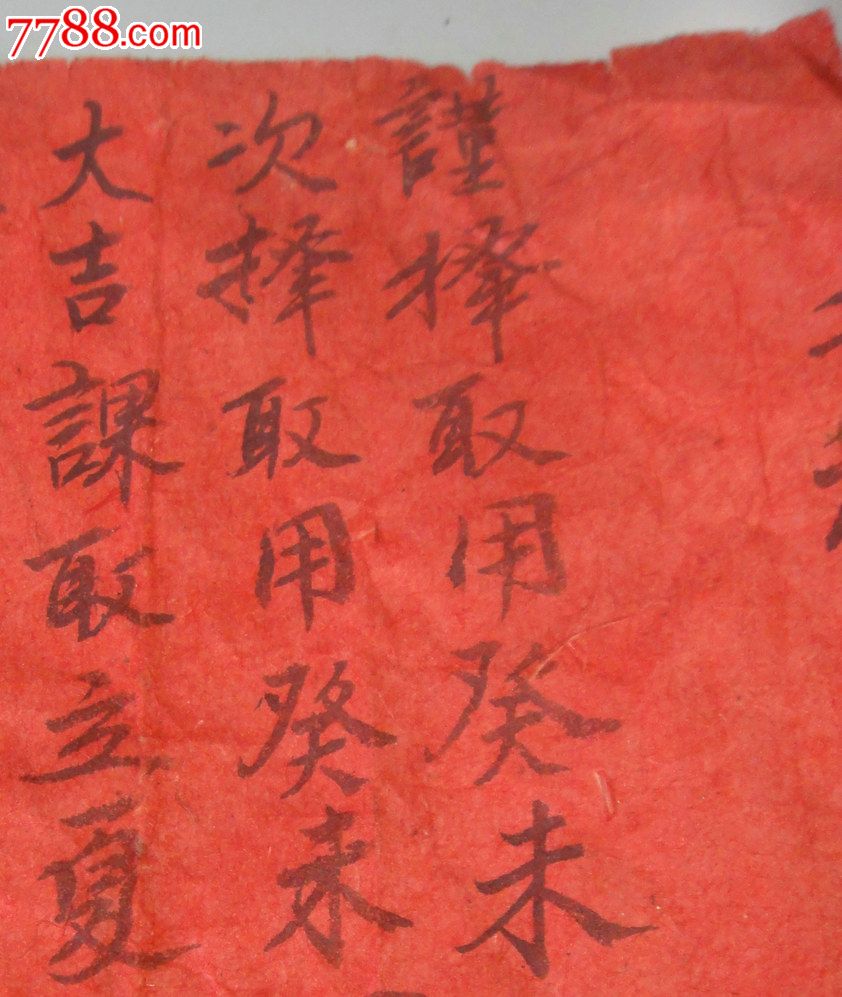 7788.com
謹擇取用癸未
次擇取用癸未
大吉課取立夏